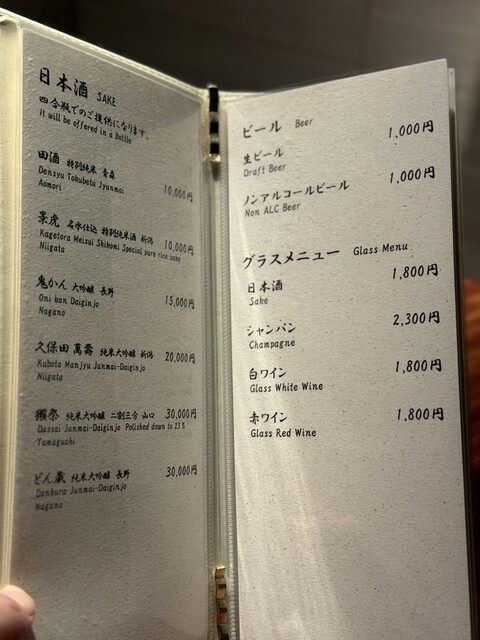 日本酒 SAKE
四合瓶でのご提供になります。
It will be offered in a Bottle
田酒 特別純米 青森
Densyu Tokubetu Jyunmai 10,000円
Aomori
景虎 名水仕込 特別純米酒 新潟
Kagetora Meisui Shikomi Special pure rice sake 10,000円
Niigata
鬼かん 大吟醸 長野
Oni kan Daiginjo 15,000円
Nagano
久保田 萬壽 純米大吟醸 新潟 20,000円
Kubota Manjyu Junmai-Daiginjo
Niigata
獺祭 純米大吟醸 二割三分 山口 30,000円
Dassai Junmai-Daiginjo Polished down to 23%
Yamaguchi
どん蔵 純米大吟醸 長野 30,000円
Donkura Junmai-Daiginjo
Nagano
ビール Beer
生ビール 1,000円
Draft Beer
ノンアルコールビール 1,000円
Non ALC Beer
グラスメニュー Glass Menu
日本酒 1,800円
Sake
シャンパン 2,300円
Champagne
白ワイン 1,800円
Glass White Wine
赤ワイン 1,800円
Glass Red Wine